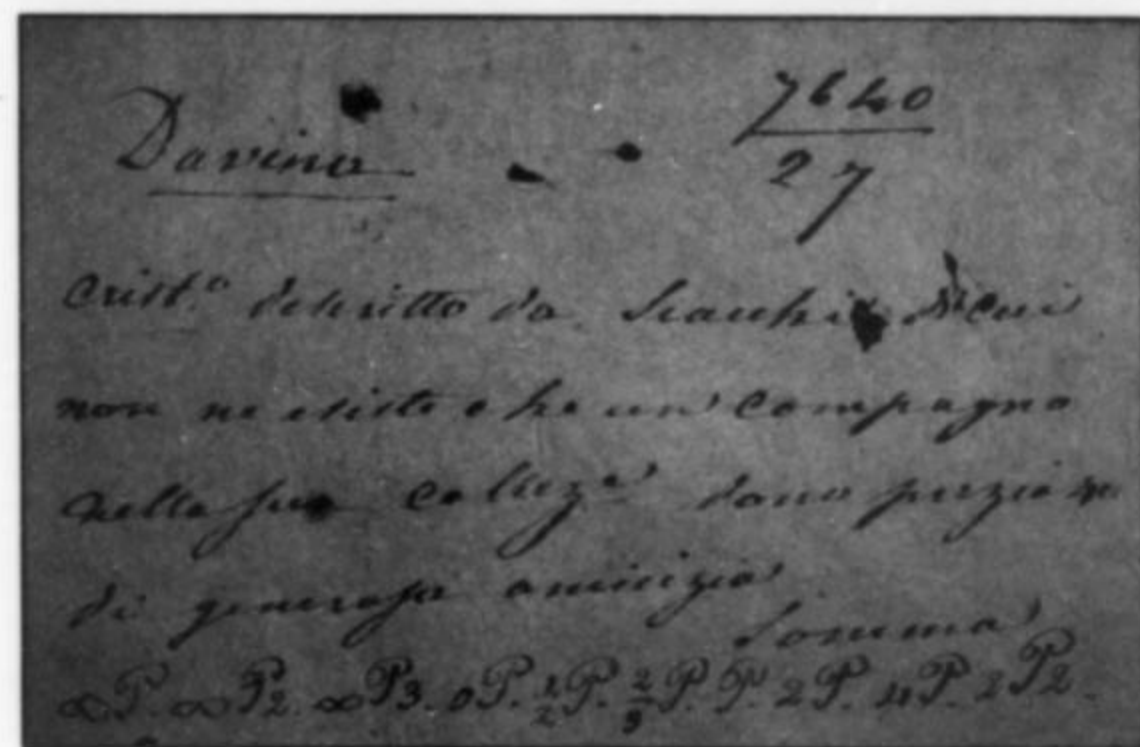 Davina 7640
27
Crist.º descritto da Scacchi di cui
non ne esiste che un compagno
nella sua collez.e dono prezioso
di generosa amicizia
Somma
∞P. ∞P2. ∞P3. 0P. 1/2P. 2/3P. P. 2P. 4P. 2P2.